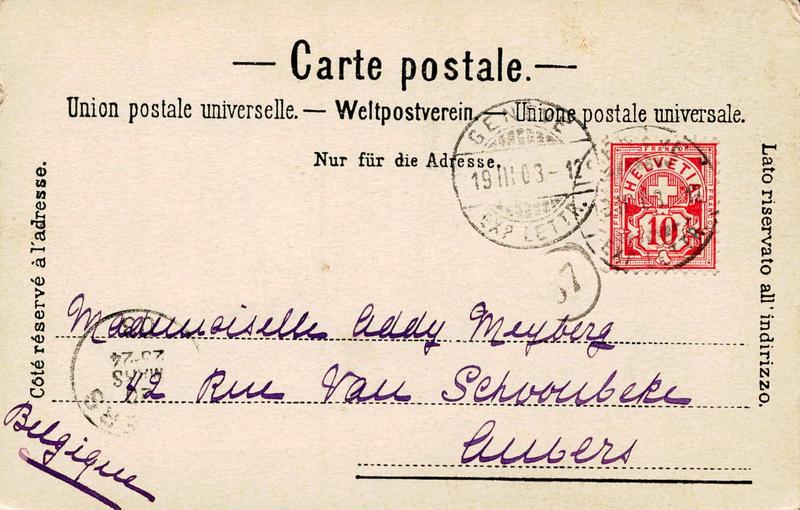 — Carte postale. —
Union postale universelle. — Weltpostverein. — Unione postale universale.
Nur für die Adresse.
Côté réservé à l'adresse.
Lato riservato all' indirizzo.
GENÈVE
19 III 03 - 12
EXP. LETTR.
FRANCO
HELVETIA
10
Mademoiselle Addy Meyberg
42 Rue Van Schoonbeke
Anvers
Belgique